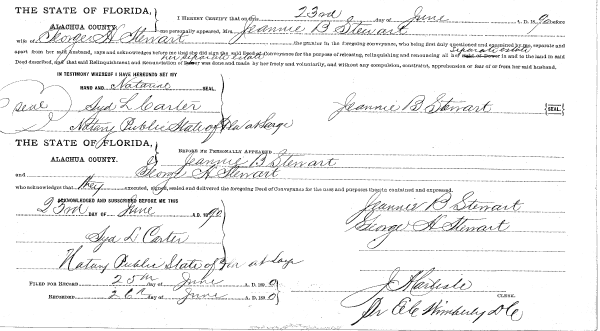 THE STATE OF FLORIDA,
ALACHUA COUNTY.
I HEREBY CERTIFY that on this 23rd day of June A. D. 18 90 before
me personally appeared, Mrs. Jeannie B Stewart
wife of George H Stewart the grantor in the foregoing conveyance, who being first duly examined by me, separate and
separate estate
apart from her said husband, says and acknowledges before me that she did sign the said Deed of Conveyance for the purpose of releasing, relinquishing and renouncing all her of Dower in and to the land in said
her separate estate
Deed described, and that said Relinquishment and Renunciation of Dower was done and made by her freely and voluntarily, and without any compulsion, constraint, apprehension or fear of or from her said husband.
IN TESTIMONY WHEREOF I HAVE HEREUNTO SET MY
HAND AND Notarial SEAL.
seal
Syd L Carter
Jeannie B Stewart {SEAL.}
Notary Public State of Fla at Large
THE STATE OF FLORIDA,
ALACHUA COUNTY.
BEFORE ME PERSONALLY APPEARED
Jeannie B Stewart
and George H Stewart
who acknowledges that they executed, signed, sealed and delivered the foregoing Deed of Conveyance for the uses and purposes therein contained and expressed.
ACKNOWLEDGED AND SUBSCRIBED BEFORE ME THIS
23rd DAY OF June A. D. 18 90
Jeannie B Stewart
George H Stewart
Syd L Carter
Notary Public State of at Large
FILED FOR RECORD 25th day of June A. D. 189 0
RECORDED 26th day of June A. D. 189 0
J Carlisle
CLERK.
Wimberly D C